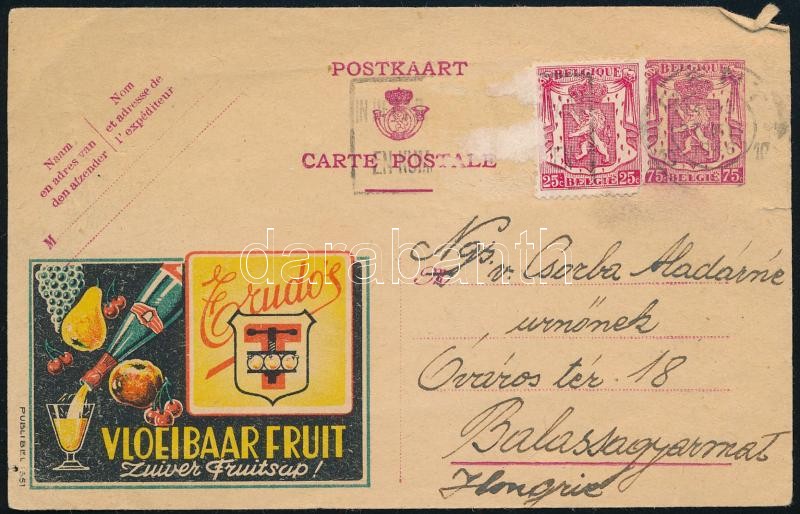 POSTKAART
CARTE POSTALE
Nom
et adresse de
l'expéditeur
Naam
en adres van
den afzender
M
BELGIQUE
25c BELGIË 25c
BELGIQUE
75c BELGIË 75c
EN
Trudo's
T
VLOEIBAAR FRUIT
Zuiver Fruitsap!
PUBLIBEL
Ngs. v. Csorba Aladárné
urnőnek
Óváros tér. 18
Balassagyarmat
Hongrie
darabanth